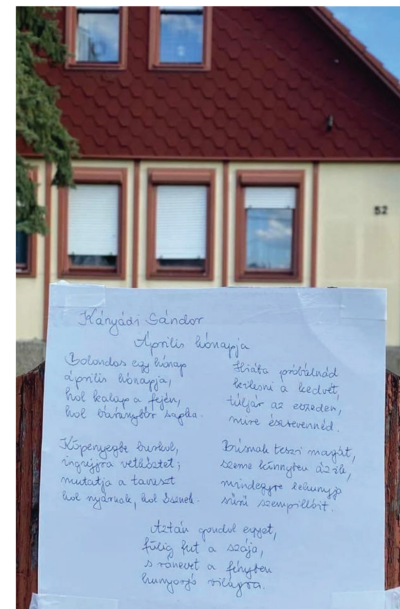 52
Kányádi Sándor
Április hónapja
Bolondos egy hónap
április hónapja,
hol kalap a fején,
hol báránybőr sapka.
Köpenyegbe burkol,
ingujjra vetkőztet;
mutatja a tavaszt
hol nyárnak, hol ősznek.
Hiába próbálnád
kilesni a kedvét,
túljár az eszeden,
mire észrevennéd.
Búsnak teszi magát,
szeme könnyben ázik,
mindegyre lehunyja
sűrű szempilláit.
Aztán gondol egyet,
fülig fut a szája,
s ránevet a fényben
hunyorgó világra.